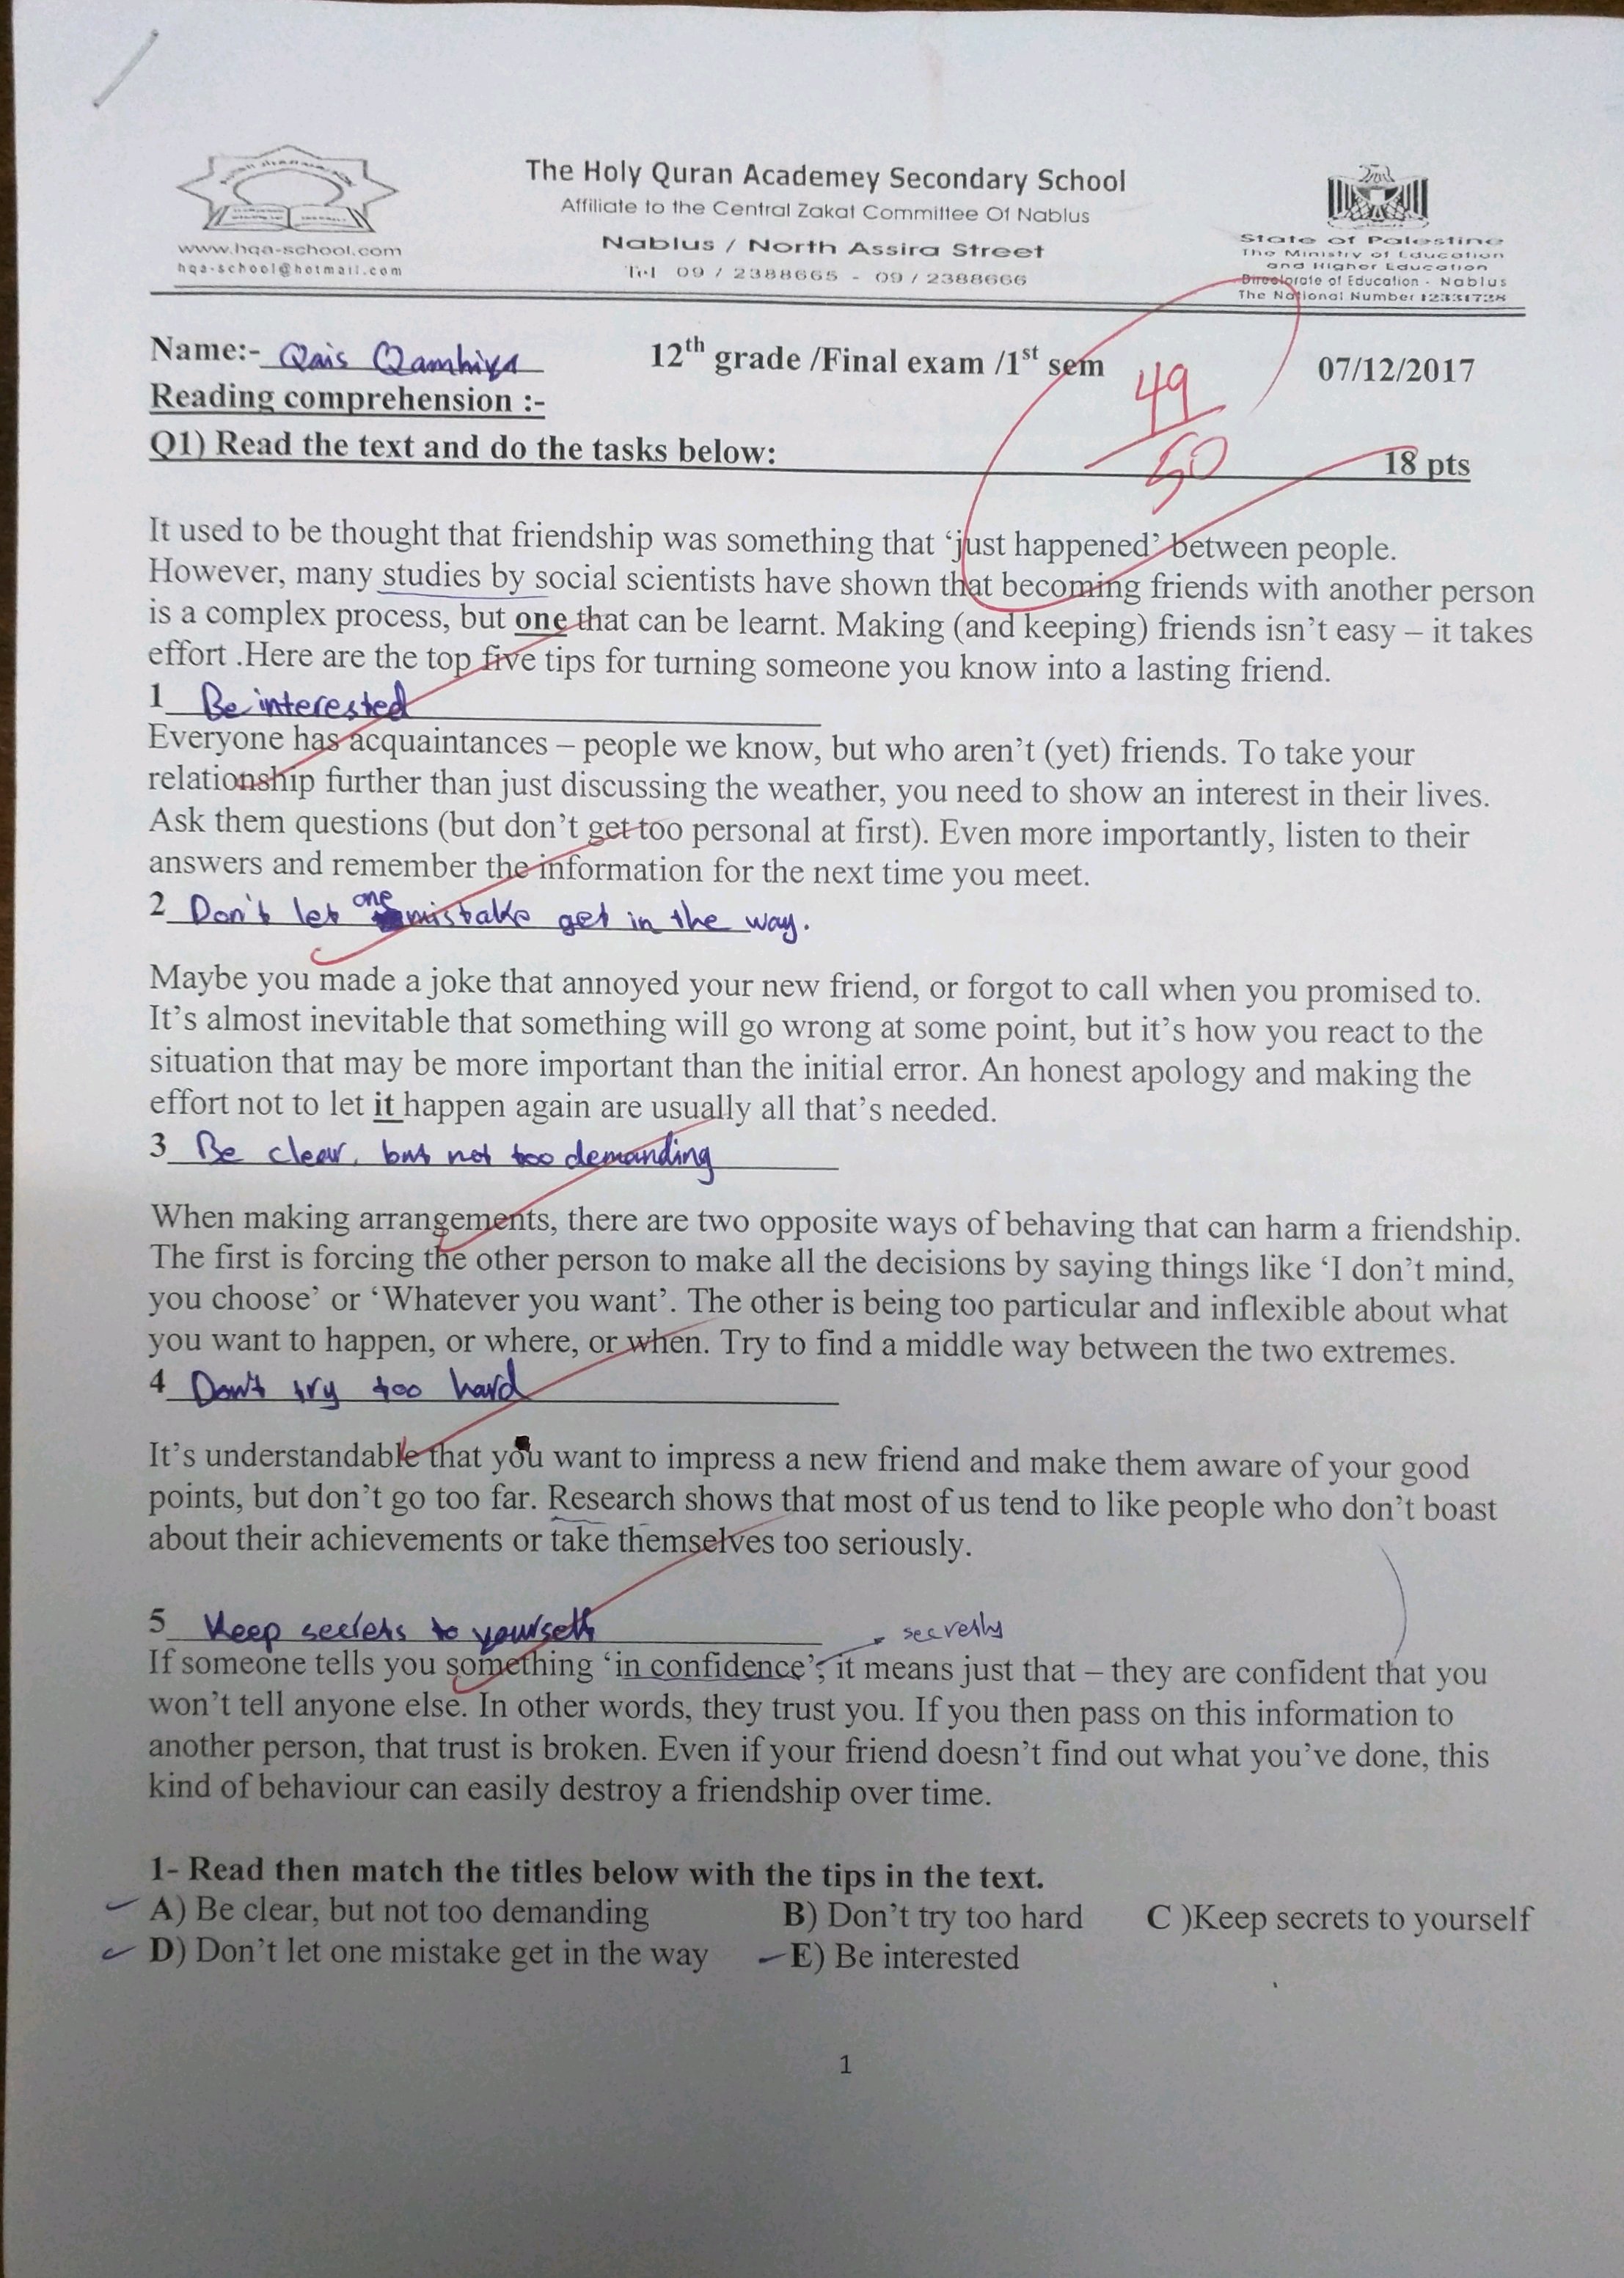 The Holy Quran Academey Secondary School
Affiliate to the Central Zakat Committee Of Nablus
Nablus / North Assira Street
Tel 09 / 2388665 - 09 / 2388666
www.hqa-school.com
hqa-school@hotmail.com
State of Palestine
The Ministry of Education
and Higher Education
Directorate of Education - Nablus
The National Number 12331728
Name:- Qais Qamhiya 12th grade /Final exam /1st sem 07/12/2017
49
50
Reading comprehension :-
Q1) Read the text and do the tasks below: 18 pts
It used to be thought that friendship was something that ‘just happened’ between people.
However, many studies by social scientists have shown that becoming friends with another person
is a complex process, but one that can be learnt. Making (and keeping) friends isn’t easy – it takes
effort .Here are the top five tips for turning someone you know into a lasting friend.
1 Be interested
Everyone has acquaintances – people we know, but who aren’t (yet) friends. To take your
relationship further than just discussing the weather, you need to show an interest in their lives.
Ask them questions (but don’t get too personal at first). Even more importantly, listen to their
answers and remember the information for the next time you meet.
2 Don't let one mistake get in the way.
Maybe you made a joke that annoyed your new friend, or forgot to call when you promised to.
It’s almost inevitable that something will go wrong at some point, but it’s how you react to the
situation that may be more important than the initial error. An honest apology and making the
effort not to let it happen again are usually all that’s needed.
3 Be clear, but not too demanding
When making arrangements, there are two opposite ways of behaving that can harm a friendship.
The first is forcing the other person to make all the decisions by saying things like ‘I don’t mind,
you choose’ or ‘Whatever you want’. The other is being too particular and inflexible about what
you want to happen, or where, or when. Try to find a middle way between the two extremes.
4 Don't try too hard
It’s understandable that you want to impress a new friend and make them aware of your good
points, but don’t go too far. Research shows that most of us tend to like people who don’t boast
about their achievements or take themselves too seriously.
5 Keep secrets to yourself
secretly
If someone tells you something ‘in confidence’, it means just that – they are confident that you
won’t tell anyone else. In other words, they trust you. If you then pass on this information to
another person, that trust is broken. Even if your friend doesn’t find out what you’ve done, this
kind of behaviour can easily destroy a friendship over time.
1- Read then match the titles below with the tips in the text.
A) Be clear, but not too demanding B) Don’t try too hard C )Keep secrets to yourself
D) Don’t let one mistake get in the way E) Be interested
1